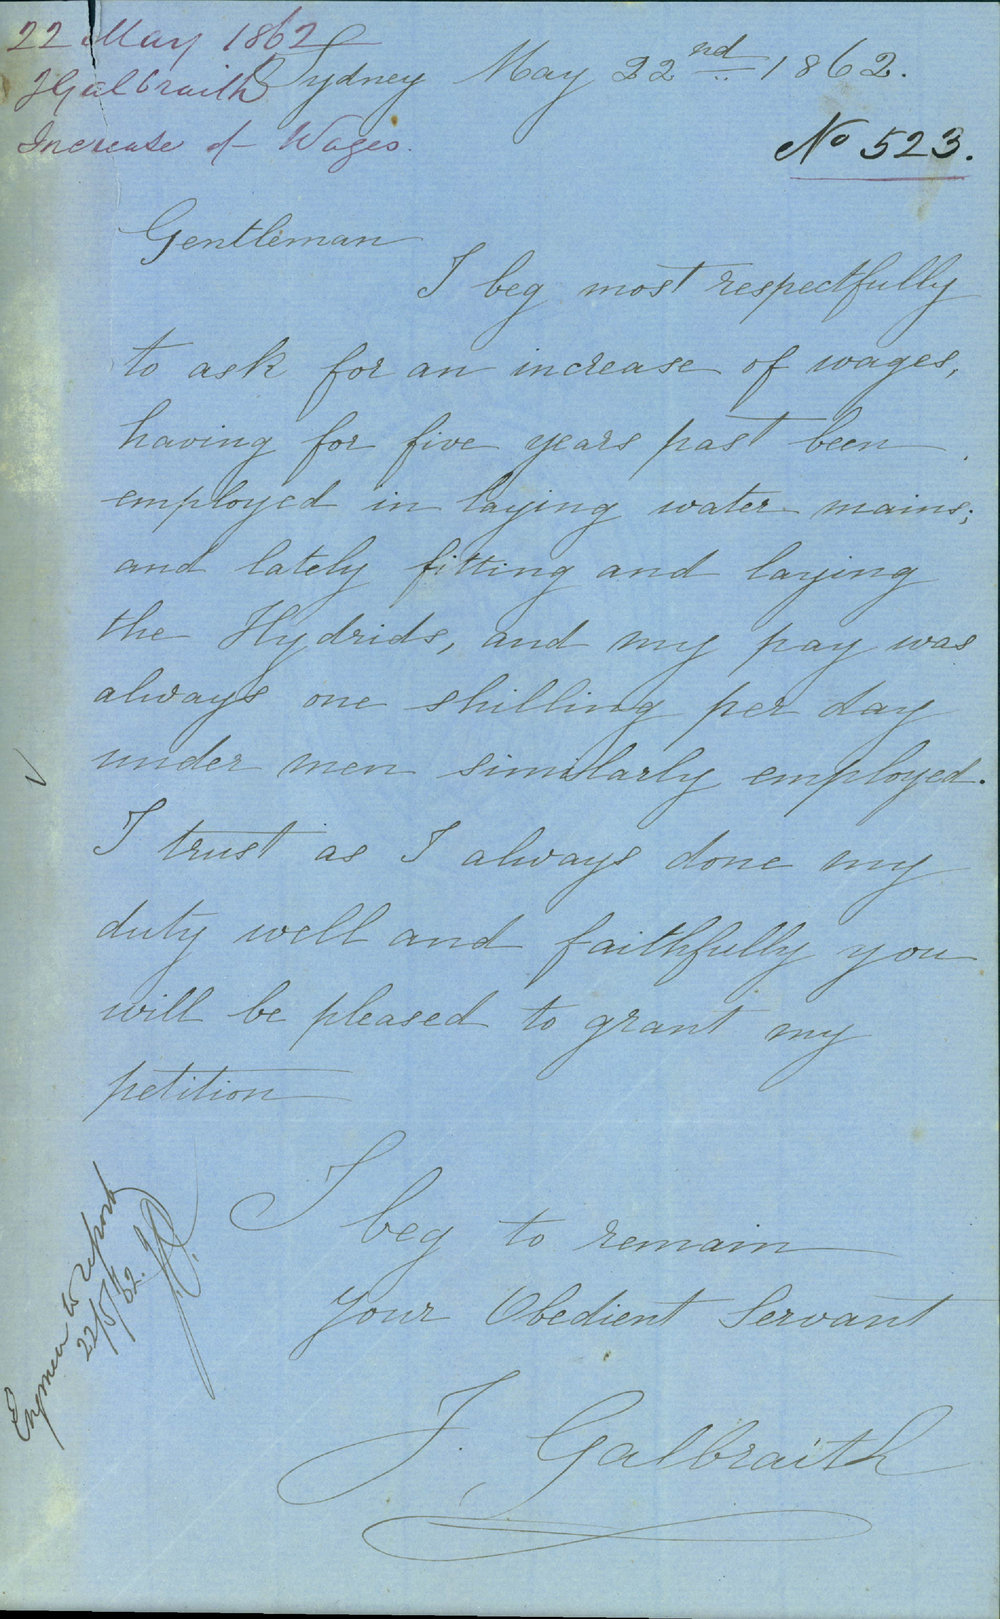 22 May 1862
J Galbraith
Increase of Wages.
Sydney May 22nd 1862.
No 523.
Gentleman
I beg most respectfully
to ask for an increase of wages,
having for five years past been
employed in laying water mains;
and lately fitting and laying
the Hydrids, and my pay was
always one shilling per day
under men similarly employed.
I trust as I always done my
duty well and faithfully you
will be pleased to grant my
petition
I
beg to remain
your Obedient Servant
J. Galbraith
Engineer to report
22/5/62.